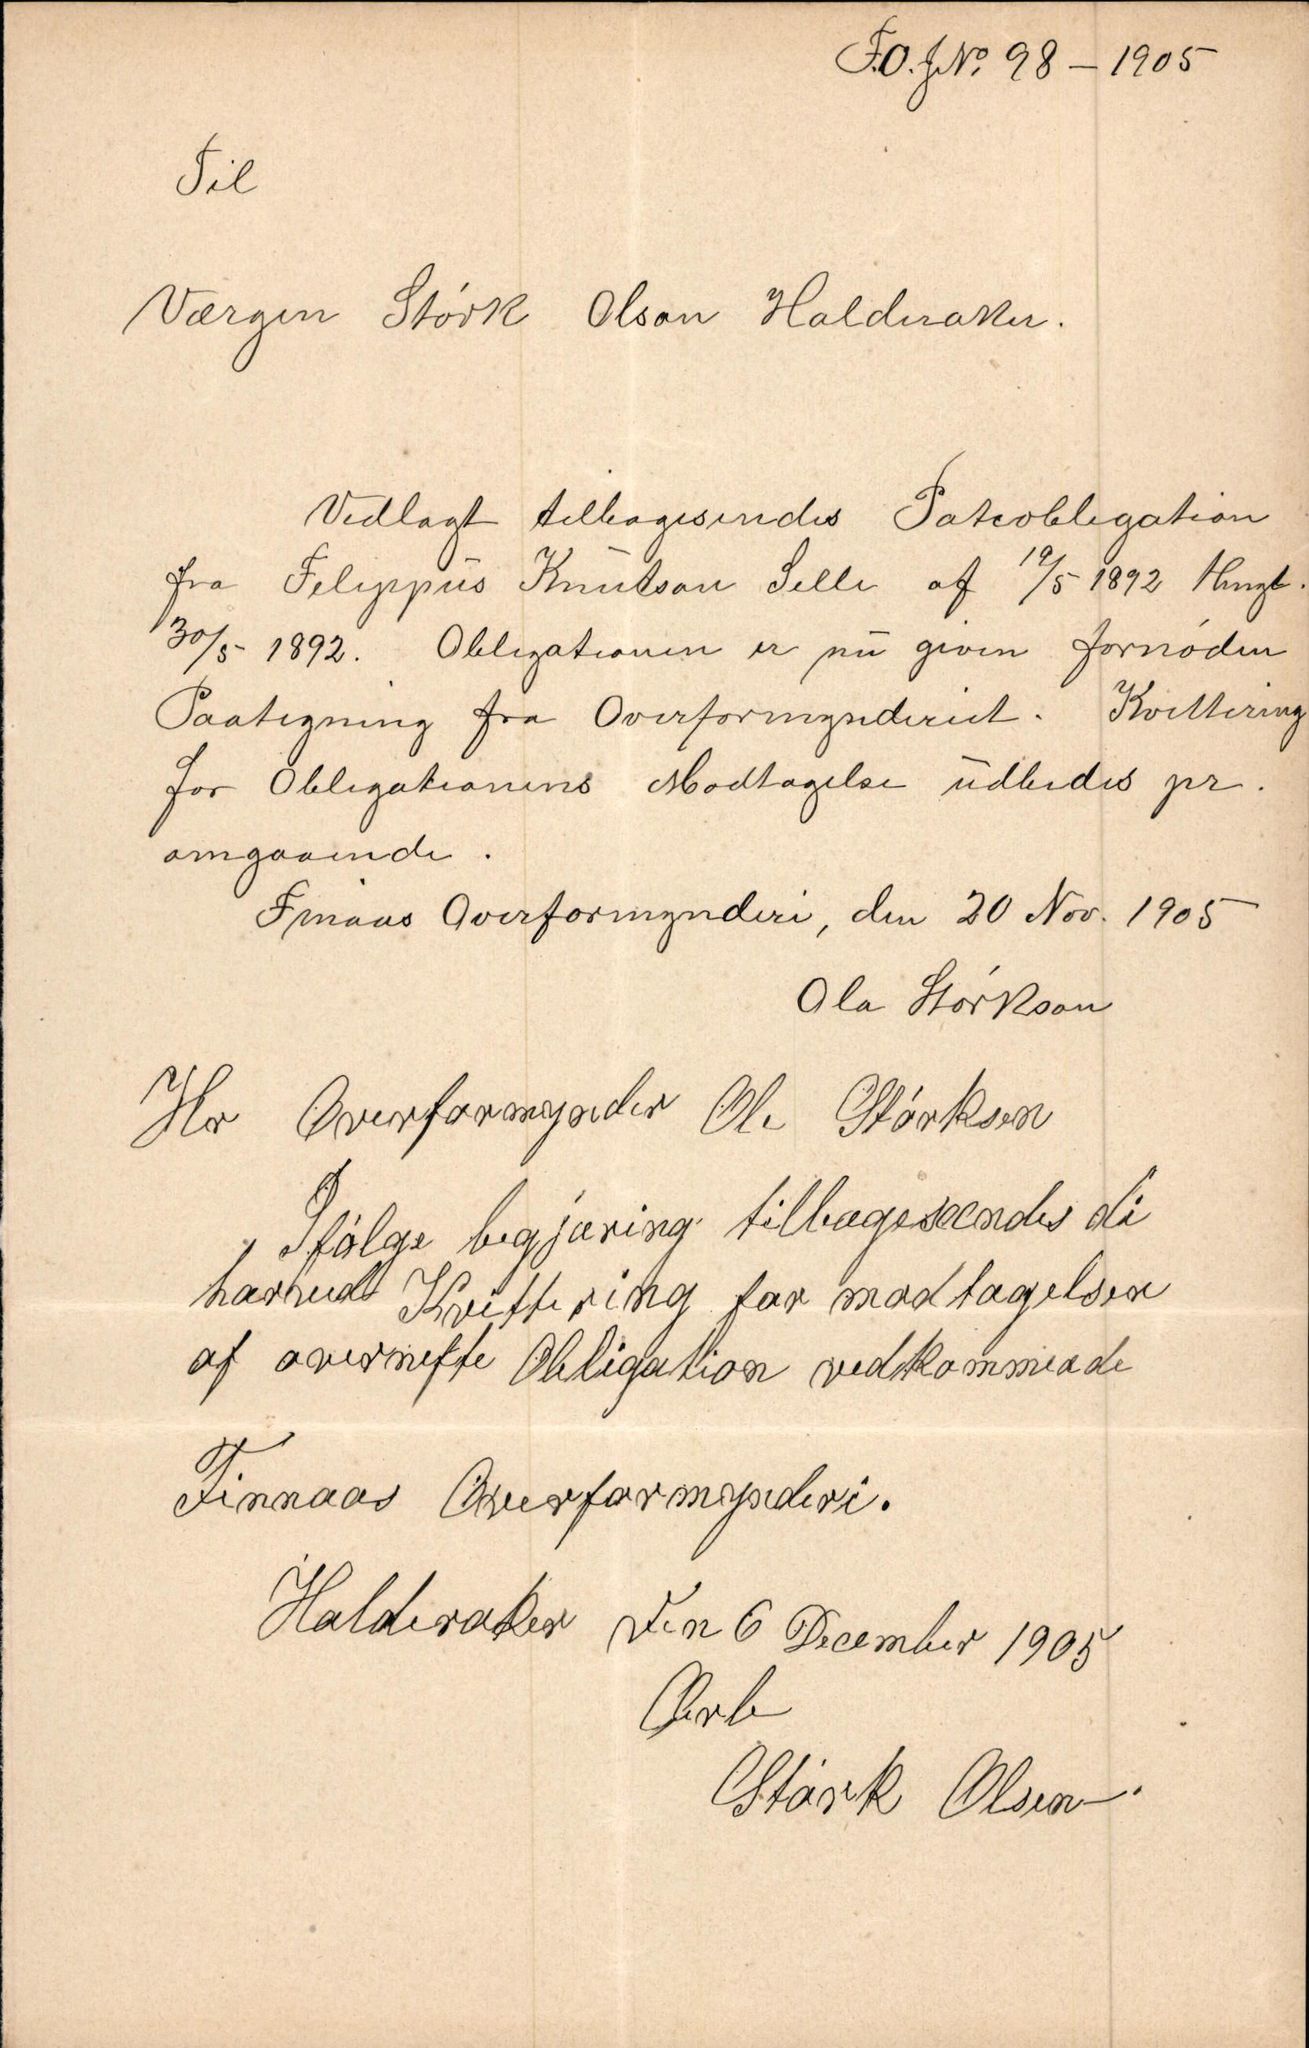 F.O.J.No. 98 – 1905
Til
Værgen Störk Olson Halderaker.
Vedlagt tilbagesendes Panteobligation
fra Filippus Knutson Selle af 19/5 1892 thingl.
30/5 1892. Obligationen er nu given fornöden
Paategning fra Overformynderiet. Kvittering
for Obligationens Modtagelse udbedes pr.
omgaaende.
Finaas Overformynderi, den 20 Nov. 1905
Ola Störkson
Hr Overformynder Ole Störksen
Ifölge begjæring tilbagesændes di
harved Kvittering for modtagelsen
af overnefte Obligation vedkommende
Finnaas Overformynderi.
Halderaker den 6 December 1905
Ærb
Störk Olsen